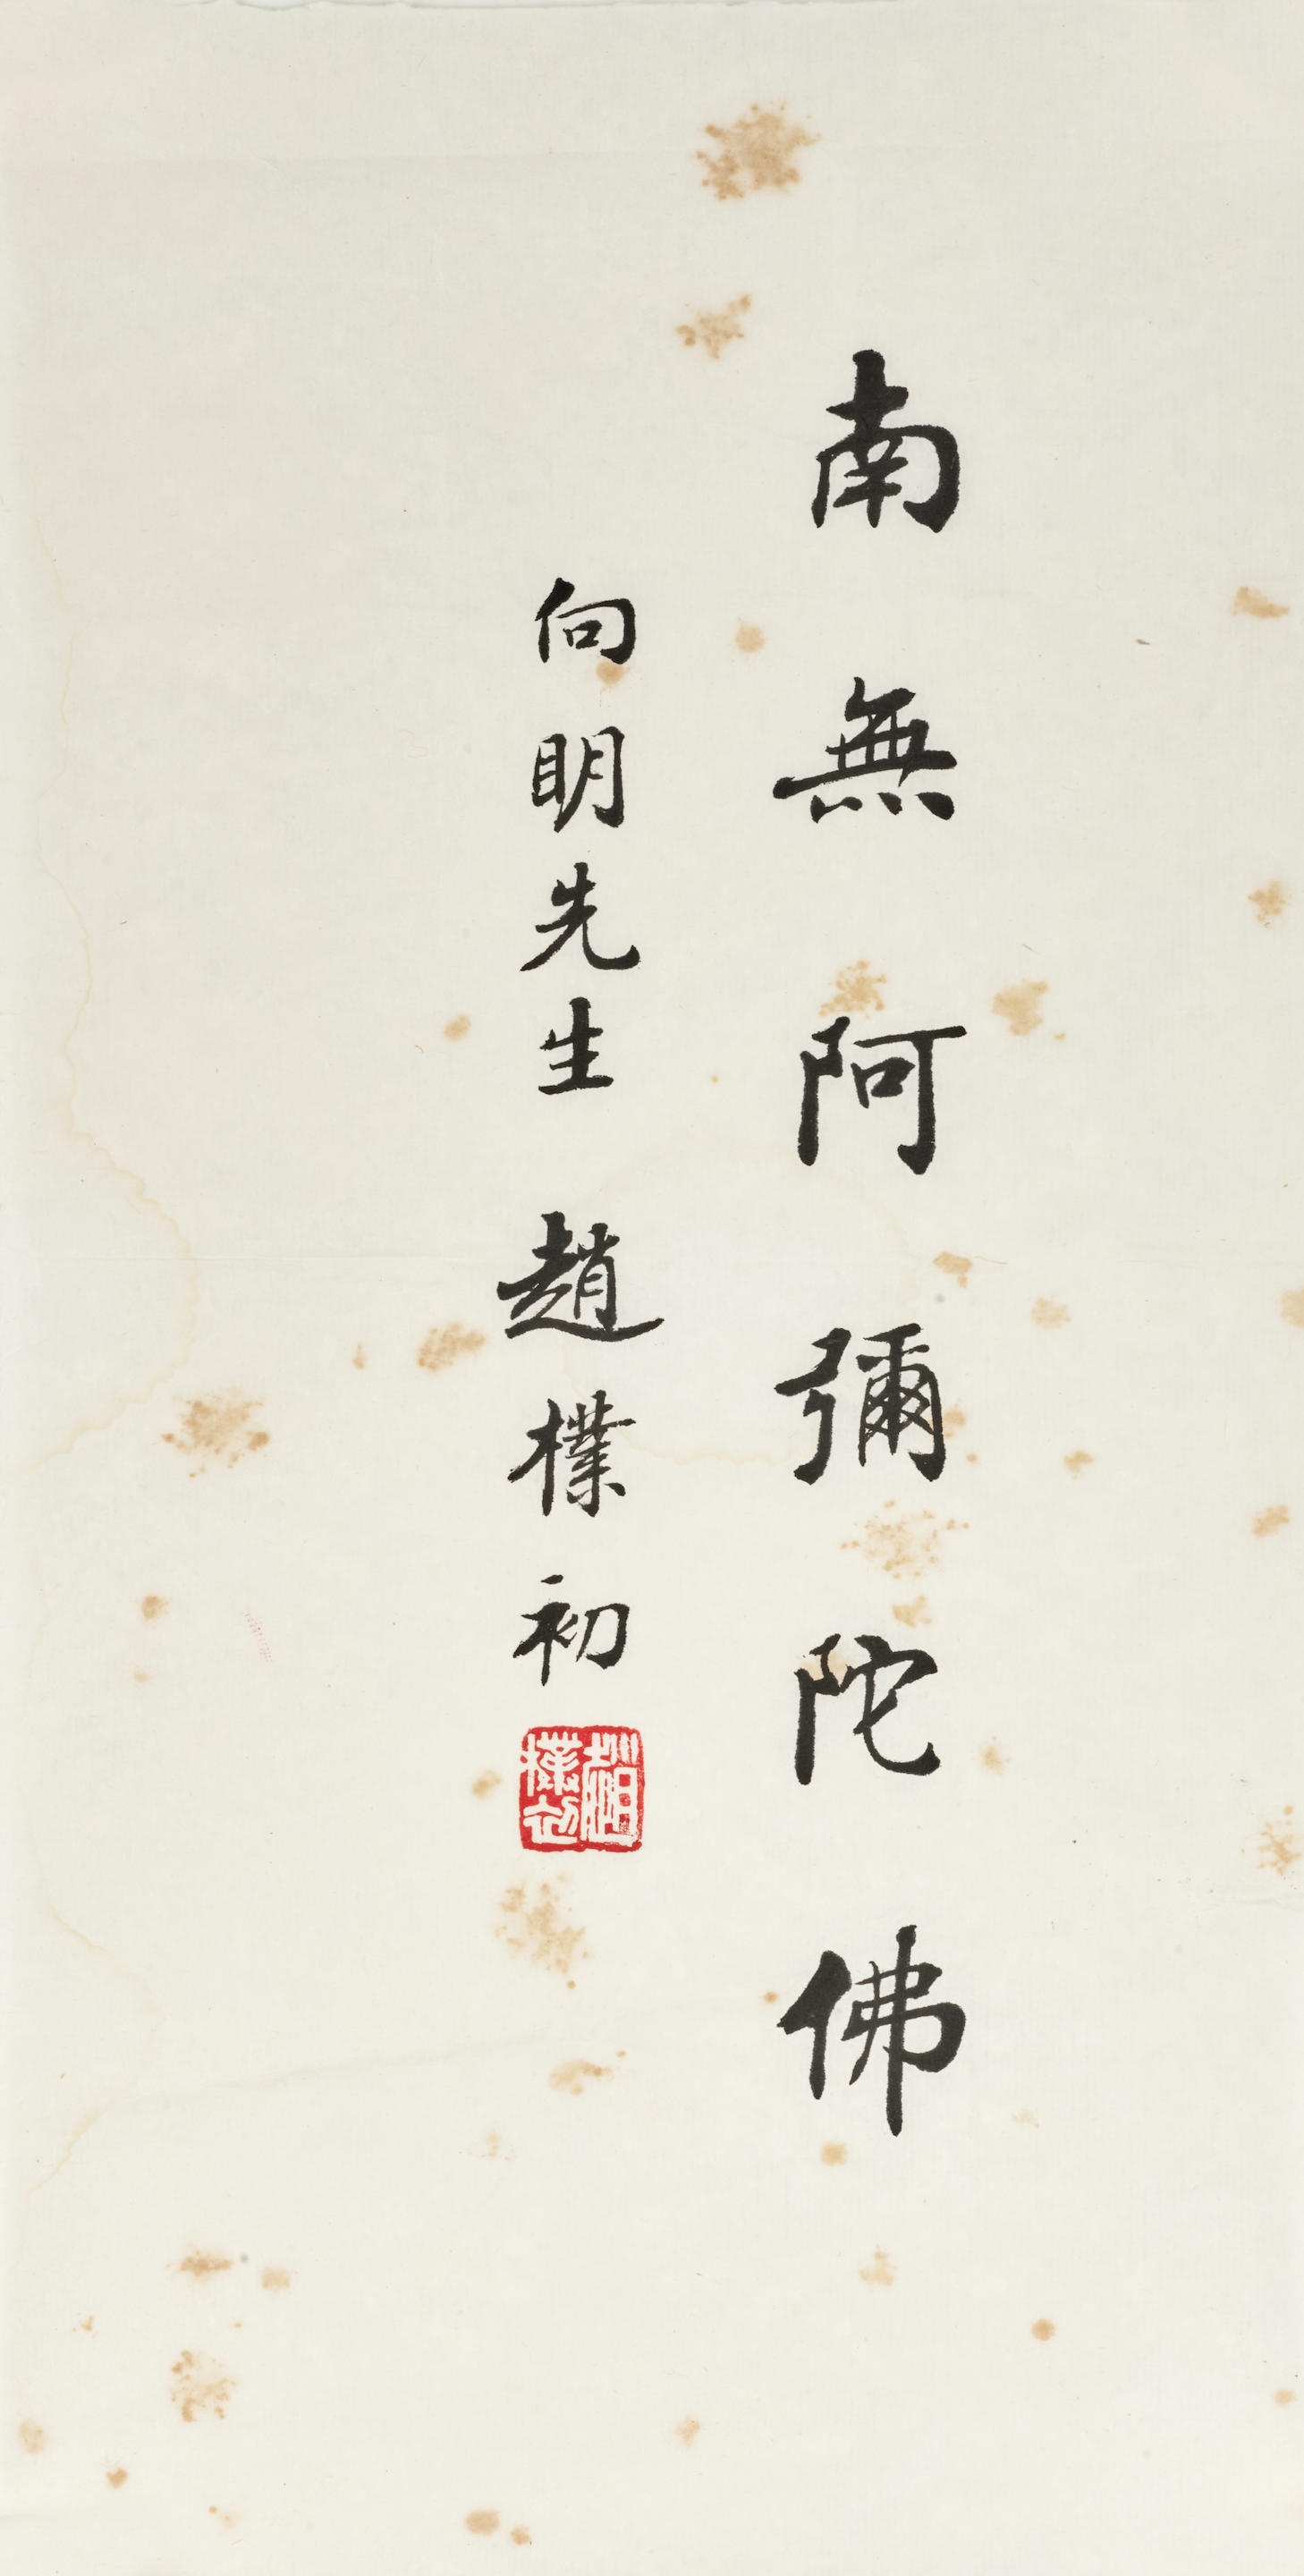 南無阿彌陀佛
向明先生 趙樸初
趙樸初